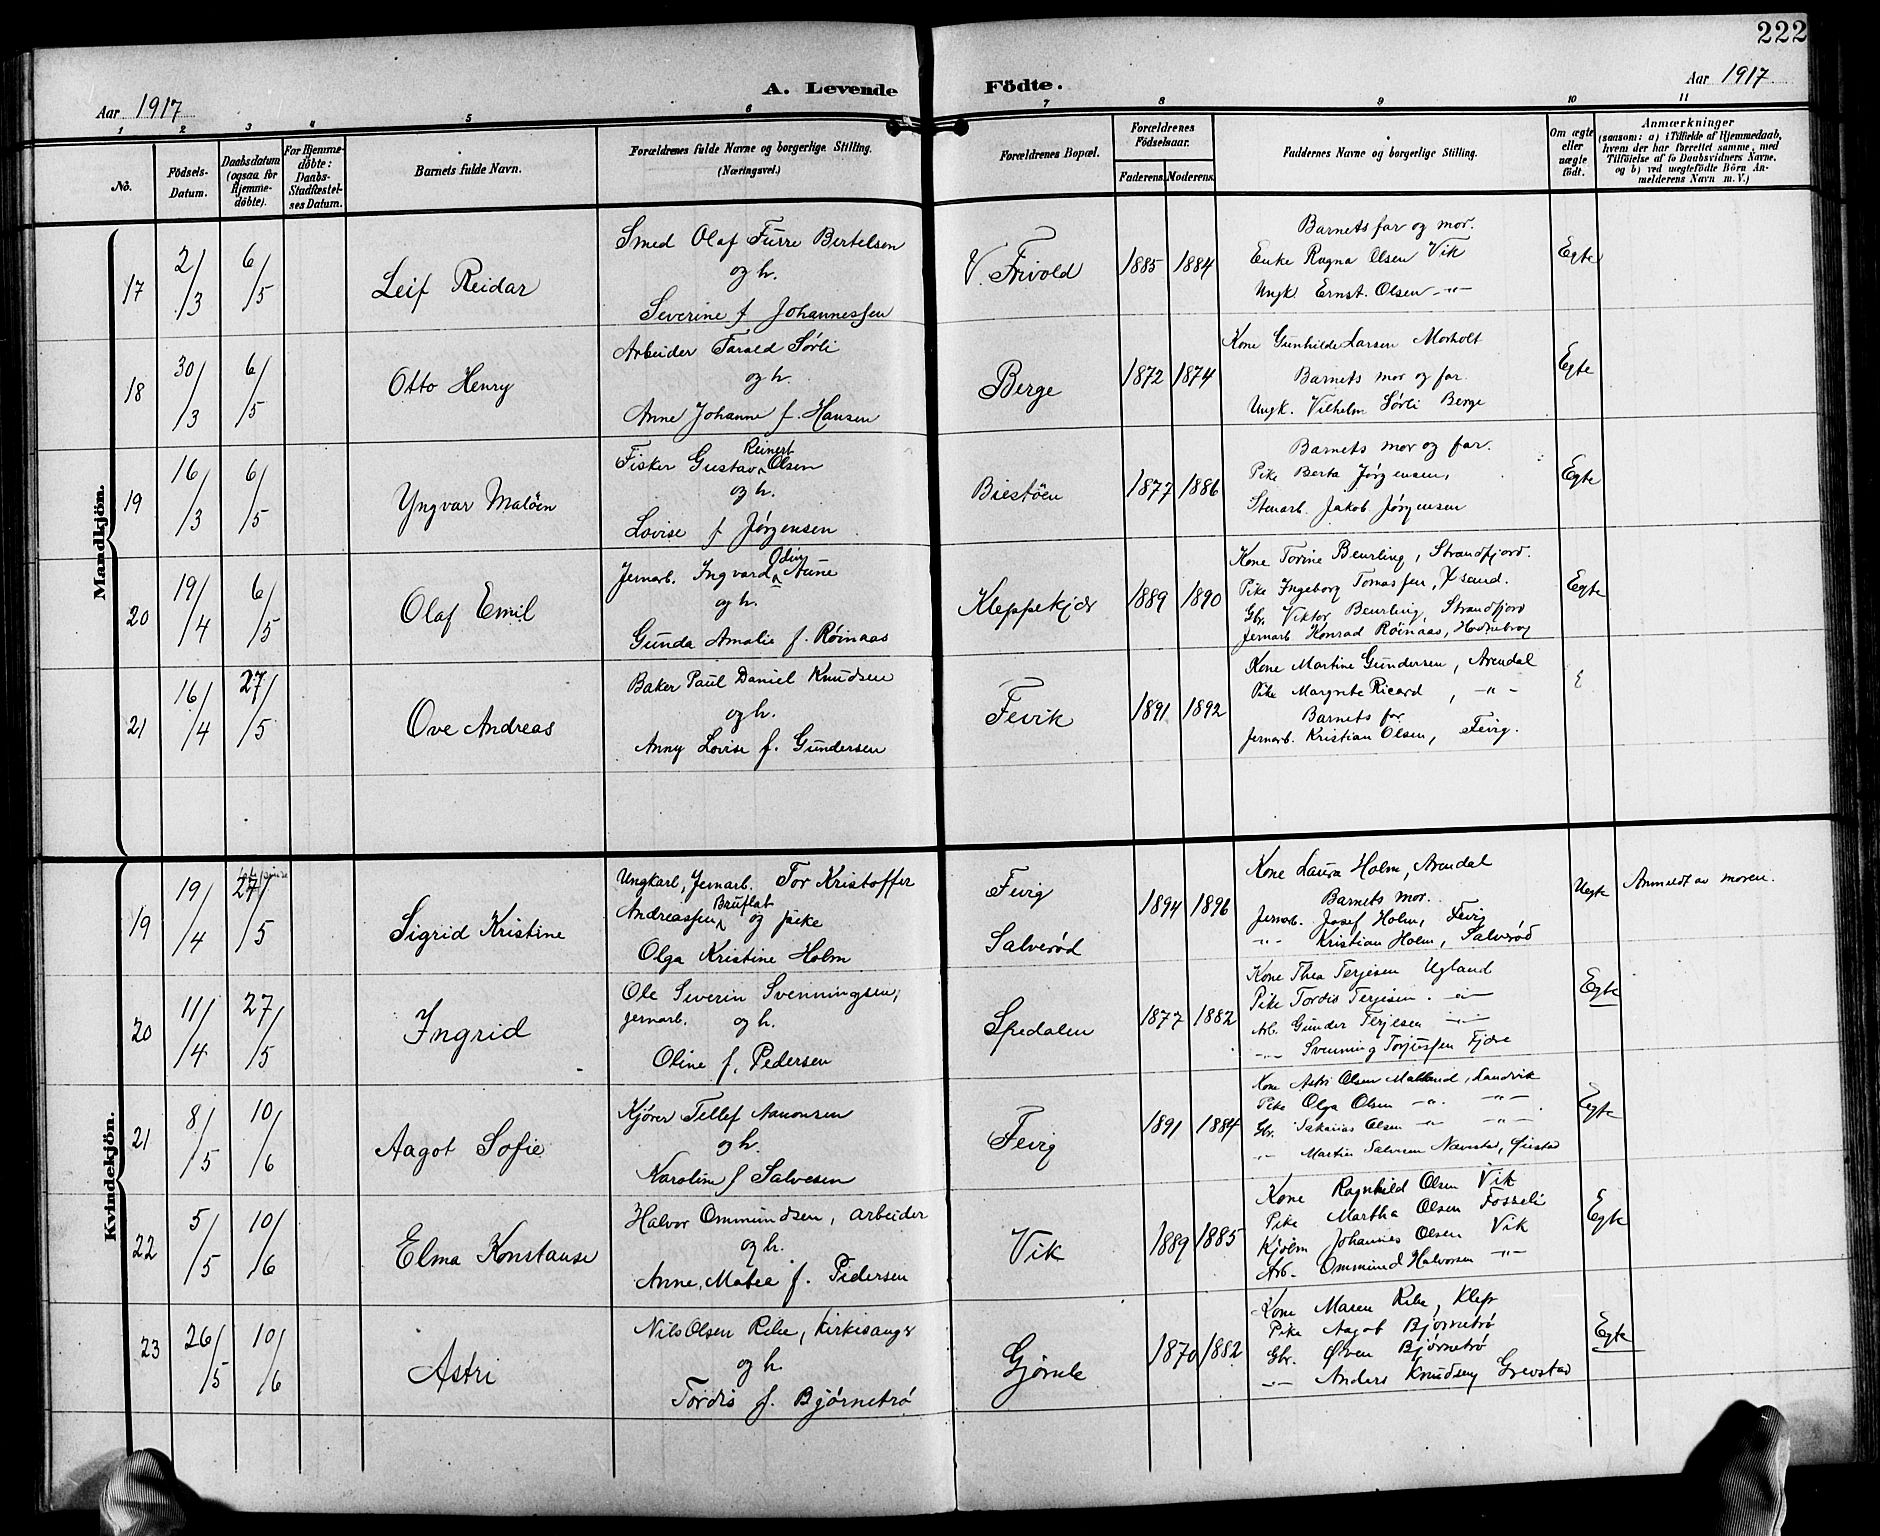 222
Aar 1917
A. Levende Födte.
Aar 1917
1 2 3 4 5 6 7 8 9 10 11
No.
Födsels-Datum.
Daabsdatum (ogsaa for Hjemmedöbte).
For Hjemmedöbte: Daabs-Stadfæstelses Datum.
Barnets fulde Navn.
Forældrenes fulde Navne og borgerlige Stilling. (Næringsvei.)
Forældrenes Bopæl.
Forældrenes Födselsaar.
Faderens. Moderens.
Faddernes Navne og borgerlige Stilling.
Om ægte eller uægte födt.
Anmærkninger
(saasom: a) i Tilfælde af Hjemmedaab, hvem der har forrettet samme, med Tilföielse af to Daabsvidners Navne, og b) ved uægtefödte Börn Anmelderens Navn m. V.)
Mandkjön.
17 2/3 6/5 Leif Reidar
Smed Olaf Furre Bertelsen
og h.
Severine f Johannessen
V. Frivold 1885 1884
Barnets far og mor.
Enke Ragna Olsen Vik
Ungk. Ernst. Olsen -"-
Egte
18 30/3 6/5 Otto Henry
Arbeider Tarald Sørli
og h.
Anne Johanne f. Hansen
Berge 1872 1874
Kone Gunhilde Larsen Morholt
Barnets mor og far.
Ungk. Vilhelm Sørli Berge
Egte
19 16/3 6/5 Yngvar Maløen
Reinert
Fisker Gustav Olsen
og h.
Lovise f Jørgensen
Biestöen 1877 1886
Barnets mor og far.
Pike Berta Jørgensen,
Stenarb. Jakob Jørgensen
Egte
20 19/4 6/5 Olaf Emil
Odin
Jernarb. Ingvard Aune
og h.
Gunda Amalie f. Røinaas
Kleppekjær 1889 1890
Kone Torine Beurling, Strandfjord.
Pike Ingeborg Tomassen, Xsand.
Gbr. Viktor Beurling, Strandfjord
Jernarb Konrad Röinaas, Hodnebrog
Egte
21 16/4 27/5 Ove Andreas
Baker Paul Daniel Knudsen
og h.
Anny Lovise f. Gundersen
Fevik 1891 1892
Kone Martine Gundersen, Arendal
Pike Margrete Ricard, -"-
Barnets far
Jernarb. Kristian Olsen, Fevig.
E
Kvindekjön.
19 19/4 27/5 Sigrid Kristine
Ungkarl, Jernarb. Tor Kristoffer
Bruflat
Andreassen og pike
Olga Kristine Holm
Fevig
Salverød
1894 1896
Kone Laura Holm, Arendal
Barnets mor.
Jernarb. Josef Holm, Fevig
-"- Kristian Holm, Salverød
Uegte
Anmeldt av moren.
20 11/4 27/5 Ingrid
Ole Severin Svenningsen,
jernarb. og h.
Oline f. Pedersen
Spedalen 1877 1882
Kone Thea Terjesen Ugland
Pike Tordis Terjesen. -"-
Arb. Gunder Terjesen -"-
-"- Svenning Torjussen Fjære
Egte
21 8/5 10/6 Aagot Sofie
Kjører Tellef Aanonsen
og h.
Karoline f Salvesen
Fevig 1891 1884
Kone Astri Olsen Molland, Landvik
Pike Olga Olsen -"- -"-
Gbr. Sakarias Olsen -"- -"-
-"- Martin Salvesen Nævestad, Øiestad
Egte
22 5/5 10/6 Elma Konstanse
Halvor Ommundsen, arbeider
og h.
Anne Matea f. Pedersen
Vik 1889 1885
Kone Ragnhild Olsen Vik
Pike Martha Olsen Fosseli
Kjølm Johannes Olsen Vik
Arb. Ommund Halvorsen -"-
Egte
23 26/5 10/6 Astri
Nils Olsen Ribe, kirkesanger
og h.
Tordis f. Bjørnetrø
Gjømle 1870 1882
Kone Maren Ribe, Klep
Pike Aagot Bjørnetrø
Gbr. Øven Bjørnetrø
-"- Anders Knudsen Grevstad
Egte